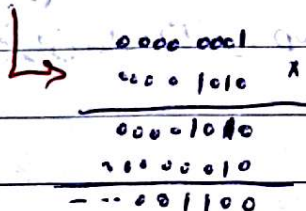 0000 0001
0000 1010 x
00001010
00000010
---001100